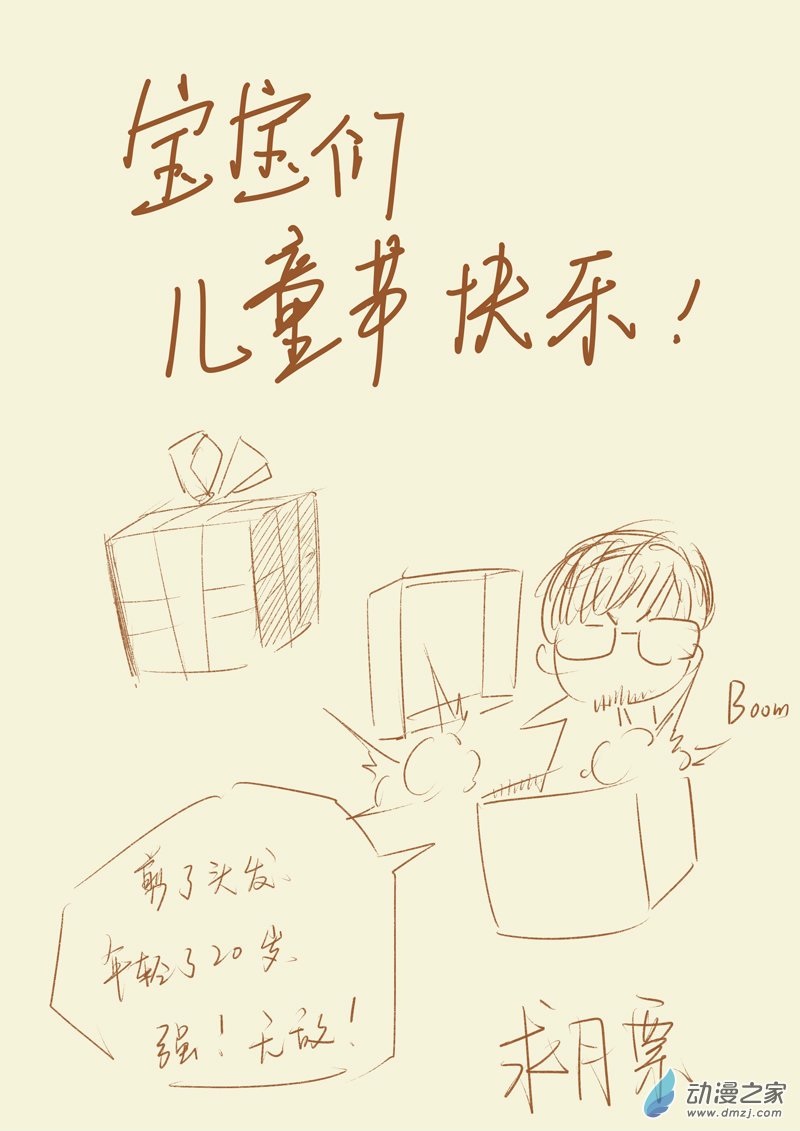 宝宝们
儿童节快乐!
Boom
剪了头发、
年轻了20岁、
强!无敌!
求月票
动漫之家
www.dmzj.com